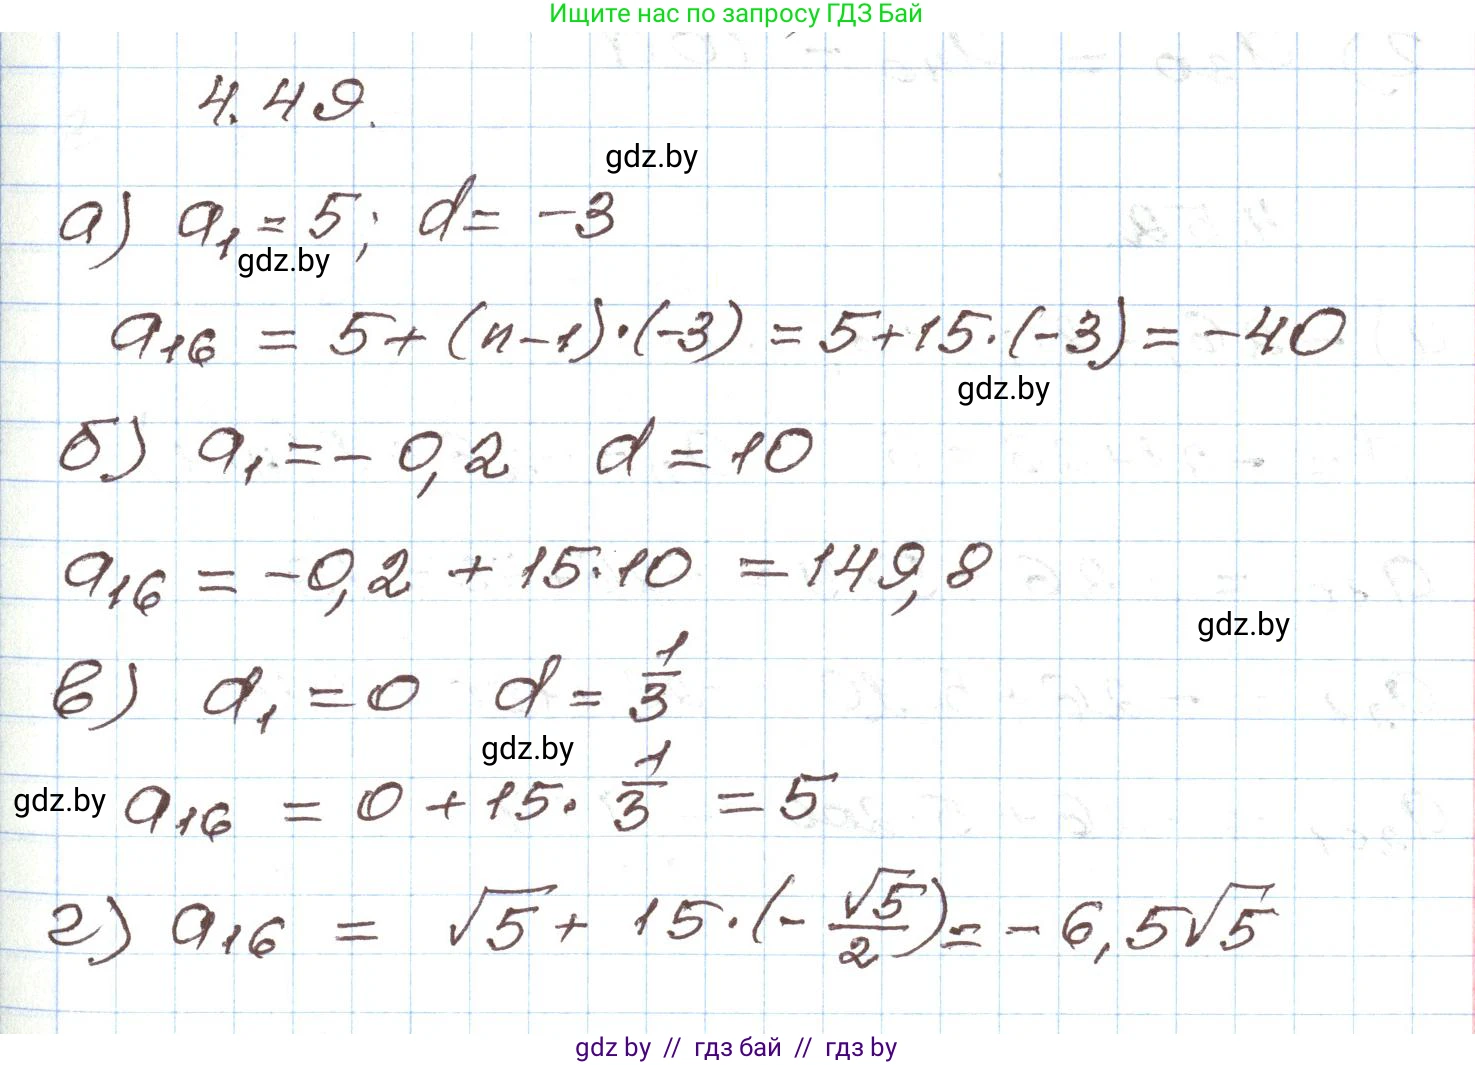 Ищите нас по запросу ГДЗ Бай
4.49.
gdz.by
а) a₁ = 5; d = -3
gdz.by
a₁₆ = 5 + (n - 1)·(-3) = 5 + 15·(-3) = -40
gdz.by
б) a₁ = -0,2 d = 10
a₁₆ = -0,2 + 15·10 = 149,8
gdz.by
в) a₁ = 0 d = 1/3
gdz.by
gdz.by
a₁₆ = 0 + 15·1/3 = 5
г) a₁₆ = √5 + 15·(-√5/2) = -6,5√5
gdz by // гдз бай // гдз by